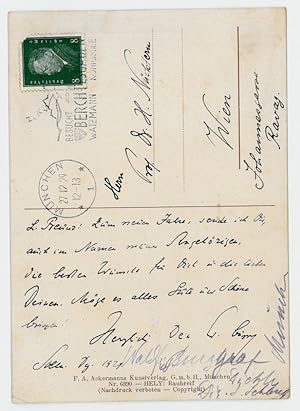 8 Deutsches Reich 8
BESUCHT
BERCHTESGADEN
WATZMANN KÖNIGSSEE
MÜNCHEN
27.12.29
*12-13*
1
Herrn
Prof. Dr. H.
Wien
Johannesgasse
L. Freund! Zum neuen Jahre, sende ich Dir,
auch im Namen meiner Angehörigen,
die besten Wünsche für Dich und die lieben
Deinen. Möge es alles Gute und Schöne
bringen!
Herzlich Dein
F. A. Ackermanns Kunstverlag, G. m. b. H., München
Nr. 6390 — HELY: Rauhreif
(Nachdruck verboten — Copyright)